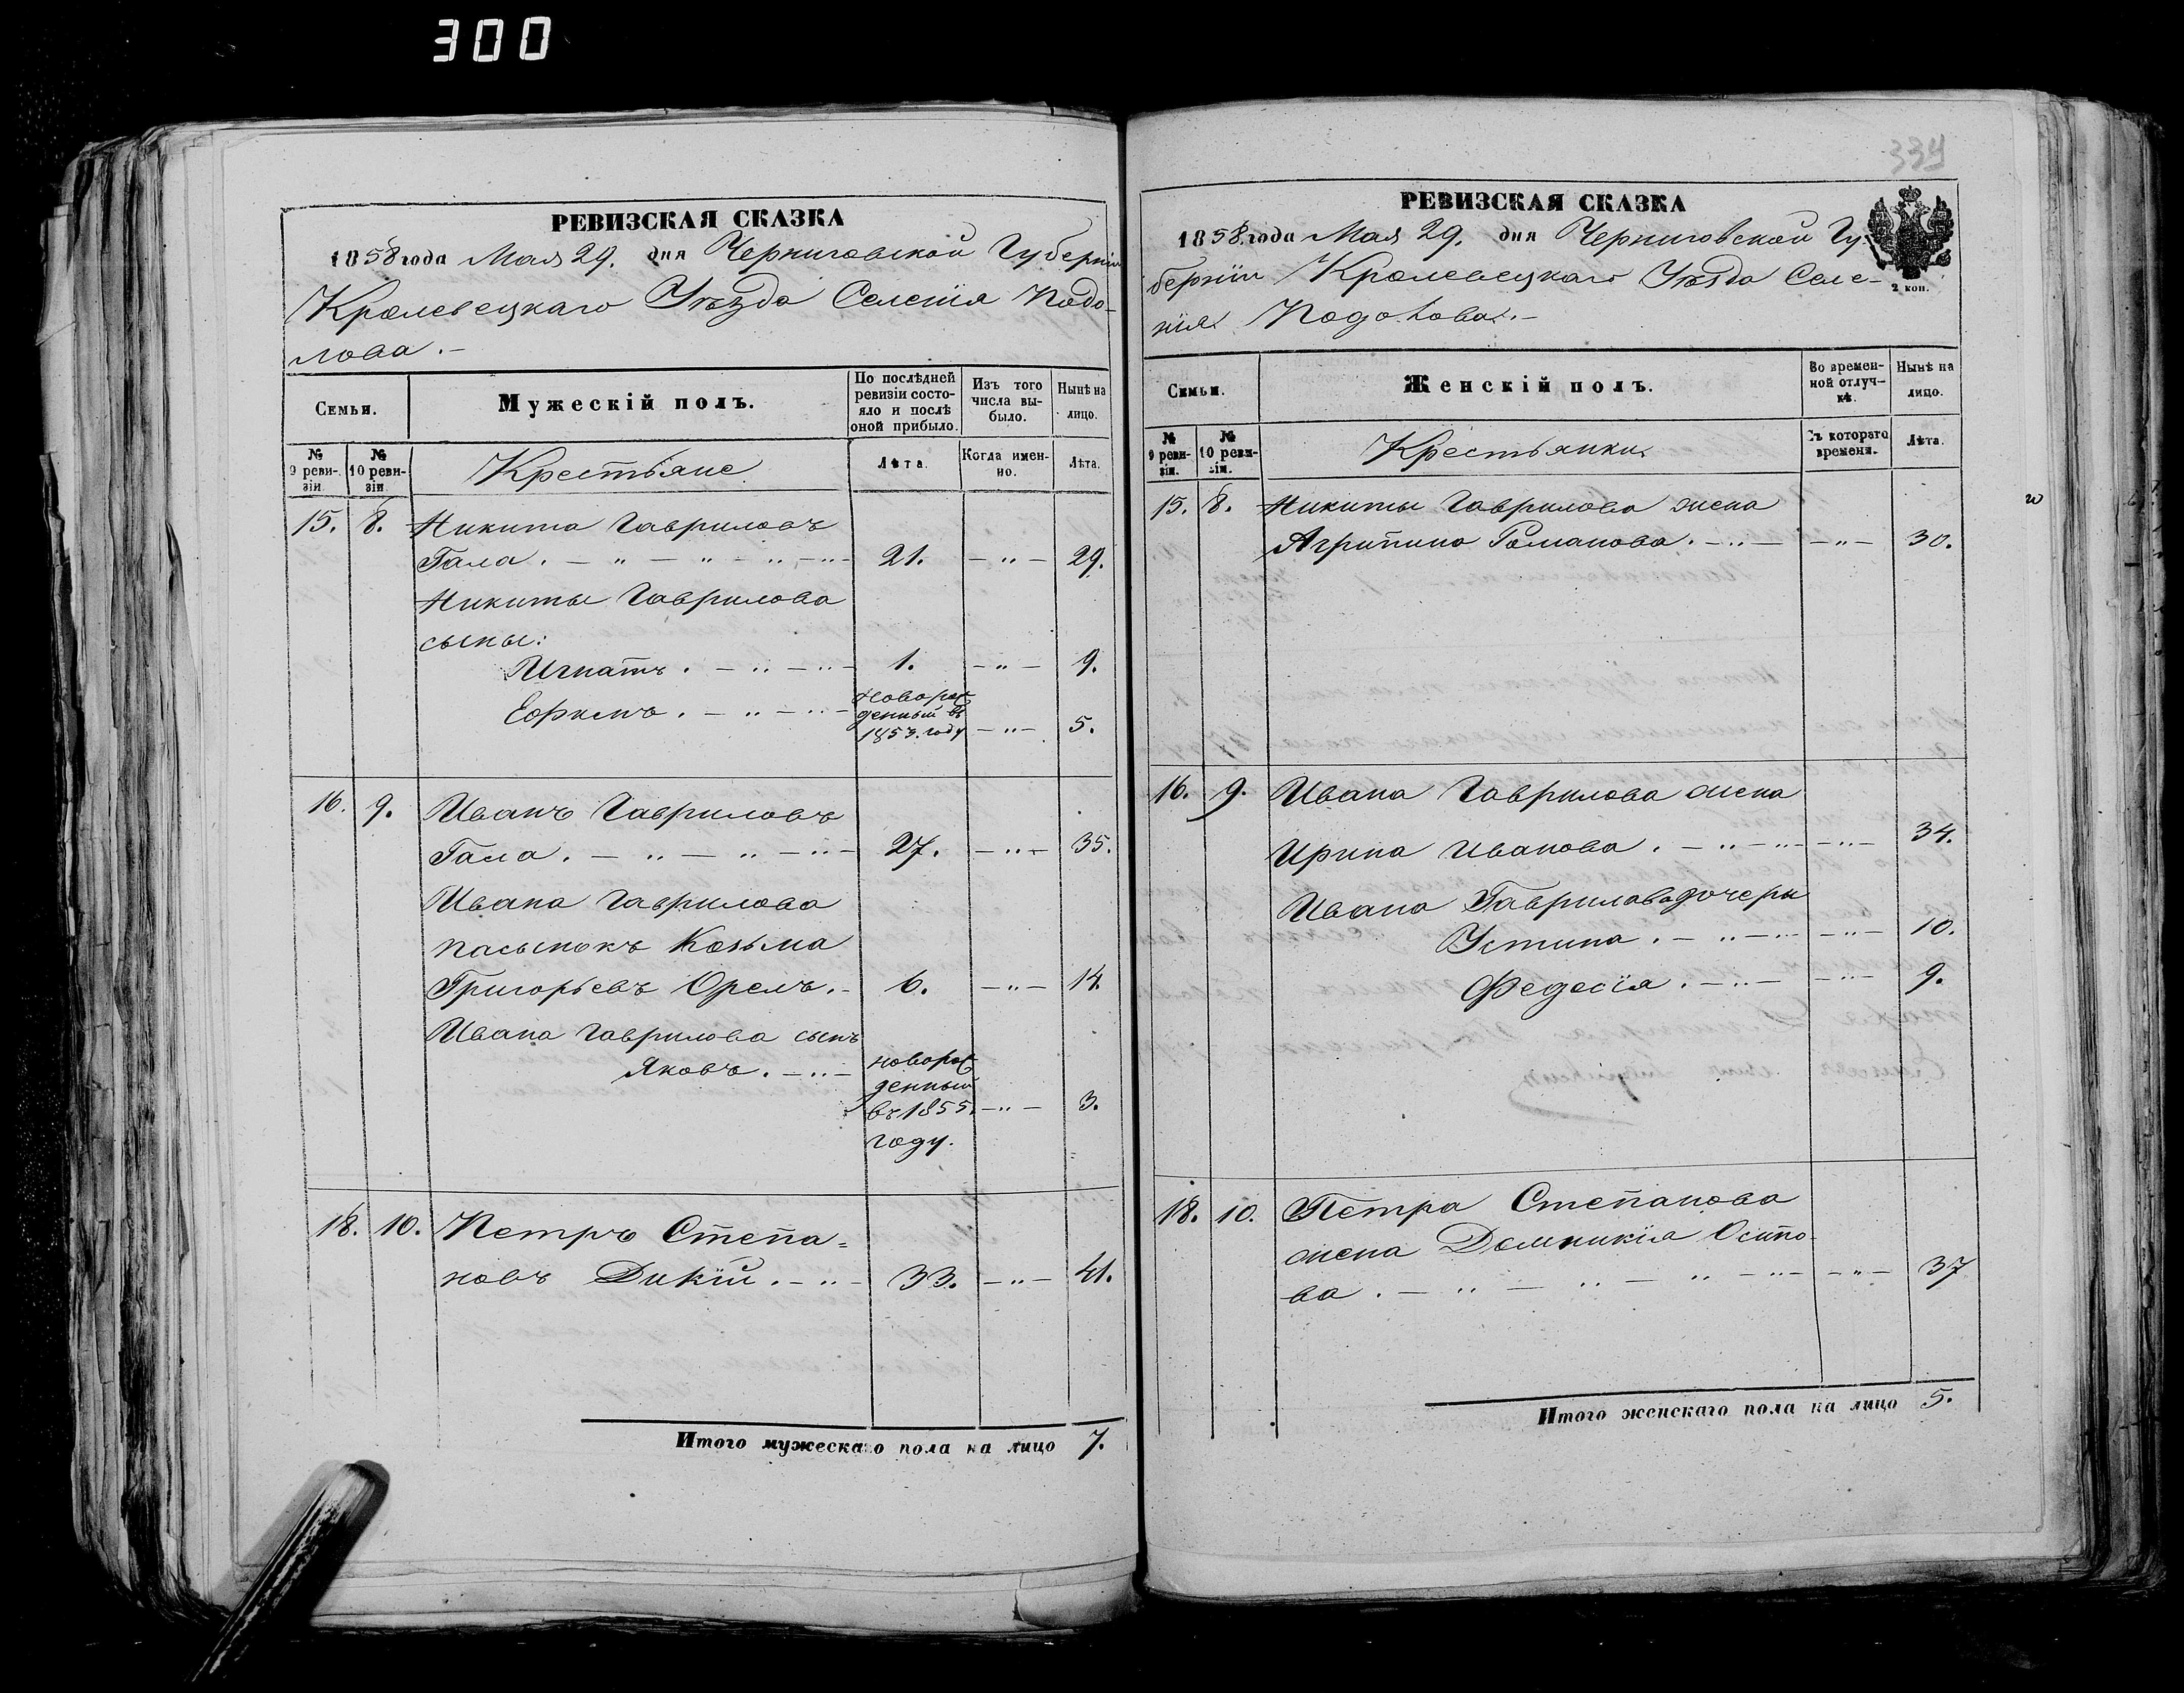 300
РЕВИЗСКАЯ СКАЗКА
1858 года Мая 29. дня Черниговской Губерніи
Кролевецкаго Уѣзда Селенія Подо-
лова.-
Семьи.
Мужескій полъ.
По послѣдней ревизіи состояло и послѣ оной прибыло.
Изъ того числа выбыло.
Нынѣ на лицо.
№ 9 ревизіи
№ 10 ревизіи
Крестьяне
Лѣта.
Когда именно.
Лѣта.
15. 8. Никита Гавриловъ
Гала. 21. 29.
Никиты Гаврилова
сыны:
Игнатъ. 1. 9.
Ефимъ. новорож
денный въ
1853. году 5.
16. 9. Иванъ Гавриловъ
Гала. 27. 35.
Ивана Гаврилова
пасынокъ Козьма
Григорьевъ Орелъ. 6. 14.
Ивана Гаврилова сынъ
Яковъ. новорож
денный
въ 1855. 3.
году.
18. 10. Петръ Степа=
новъ Дикій. 33. 41.
Итого мужескаго пола на лицо 7.
334
РЕВИЗСКАЯ СКАЗКА
1858. года Мая 29. дня Черниговской Гу-
берніи Кролевецкаго Уѣзда Селе-
нія Подолова.-
2 коп.
Семьи.
Женскій полъ.
Во временной отлучкѣ.
Нынѣ на лицо.
№ 9 ревизіи.
№ 10 ревизіи.
Крестьянки
Съ котораго времени.
Лѣта.
15. 8. Никиты Гаврилова жена
Агрипина Романова. 30.
16. 9. Ивана Гаврилова жена
Ирина Иванова. 34.
Ивана Гаврилова дочери
Устина. 10.
Федесія. 9.
18. 10. Петра Степанова
жена Домникія Осипо-
ва. 37
Итого женскаго пола на лицо 5.